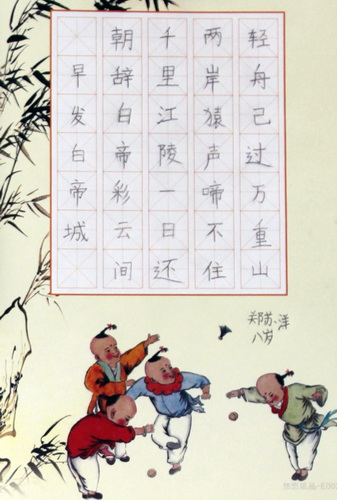 早发白帝城
朝辞白帝彩云间
千里江陵一日还
两岸猿声啼不住
轻舟己过万重山
八岁